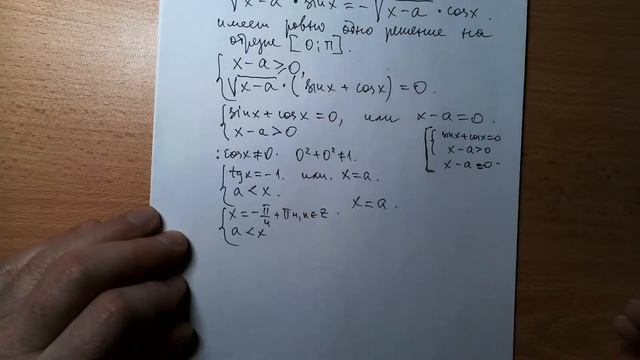 √x-a · sinx = -√x-a · cosx.
имеет ровно одно решение на
отрезке [0; π].
{ x-a ≥ 0,
√x-a · (sinx + cosx) = 0.
{ sinx + cosx = 0, или x-a = 0.
x-a > 0
{ sinx+cosx=0
x-a>0
x-a=0.
: cosx ≠ 0. 0²+0² ≠ 1.
{ tgx = -1. или x = a.
a < x.
{ x = -π/4 + πn, n∈Z. x = a.
a < x